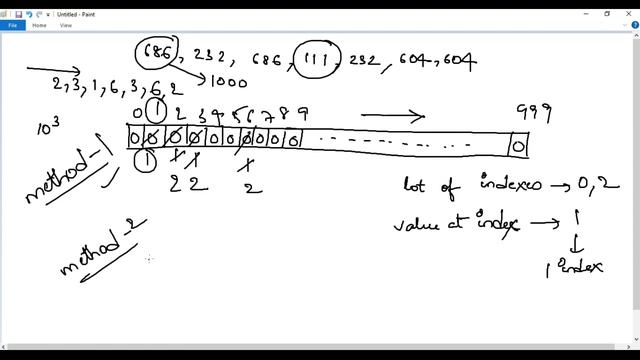 Untitled - Paint
File Home View
686, 232, 686, 111, 232, 604, 604
1000
2, 3, 1, 6, 3, 6, 2
0 1 2 3 4 5 6 7 8 9 999
10³
0 0 0 0 0 0 0 0 0 0 0
method-1
1 1 1 1
2 2 2
lot of indexes → 0, 2
value at index → 1
1 index
method-2